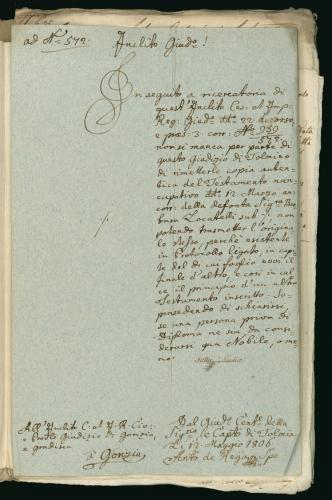 ad N.° 572.
Inclito Giud.°!
In seguito a ricercatoria di
quest'Inclito Ces. et Imp.
Reg: Giud.° dd.° 22 decorso,
e præs: 3. corr: N.° 959
572.
non si manca per parte di
questo Giudizio di Tolmino
di rimetterle copia auten-
tica del Testamento nun-
cupativo dd.° 12 Marzo
corr: della defonta Sig.ra Bar-
bara Locatelli sub /. non
potendo trasmetter l'origina-
le stesso, perchè esistente
in Protocollo legato, in capi-
te del di cui foglio evvi il
finale d'altro, e così in cal-
ce il principio d'un altro
Testamento inscritto. So-
prasedendo di schiarir,
se una persona priva di
Diploma ne sia da consi-
derarsi qua Nobile, o me-
no.
All'Inclito C. et I. R. Civ:
e Prov.le Giudizio di Gorizia
e Gradisca
a Gorizia
Dal Giud.° Cent.le della
Sig.ria e Capto di Tolmino
Li 12 Maggio 1806
Anto de